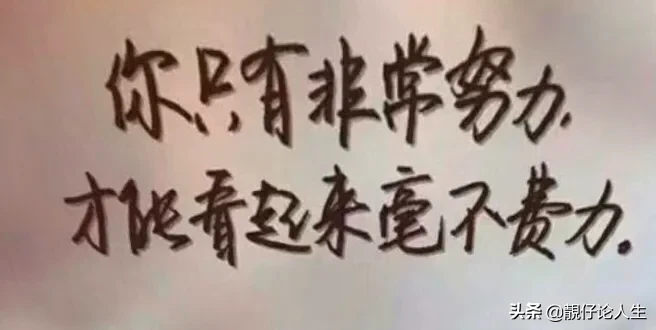 你只有非常努力，
才能看起来毫不费力。
头条 @靓仔论人生